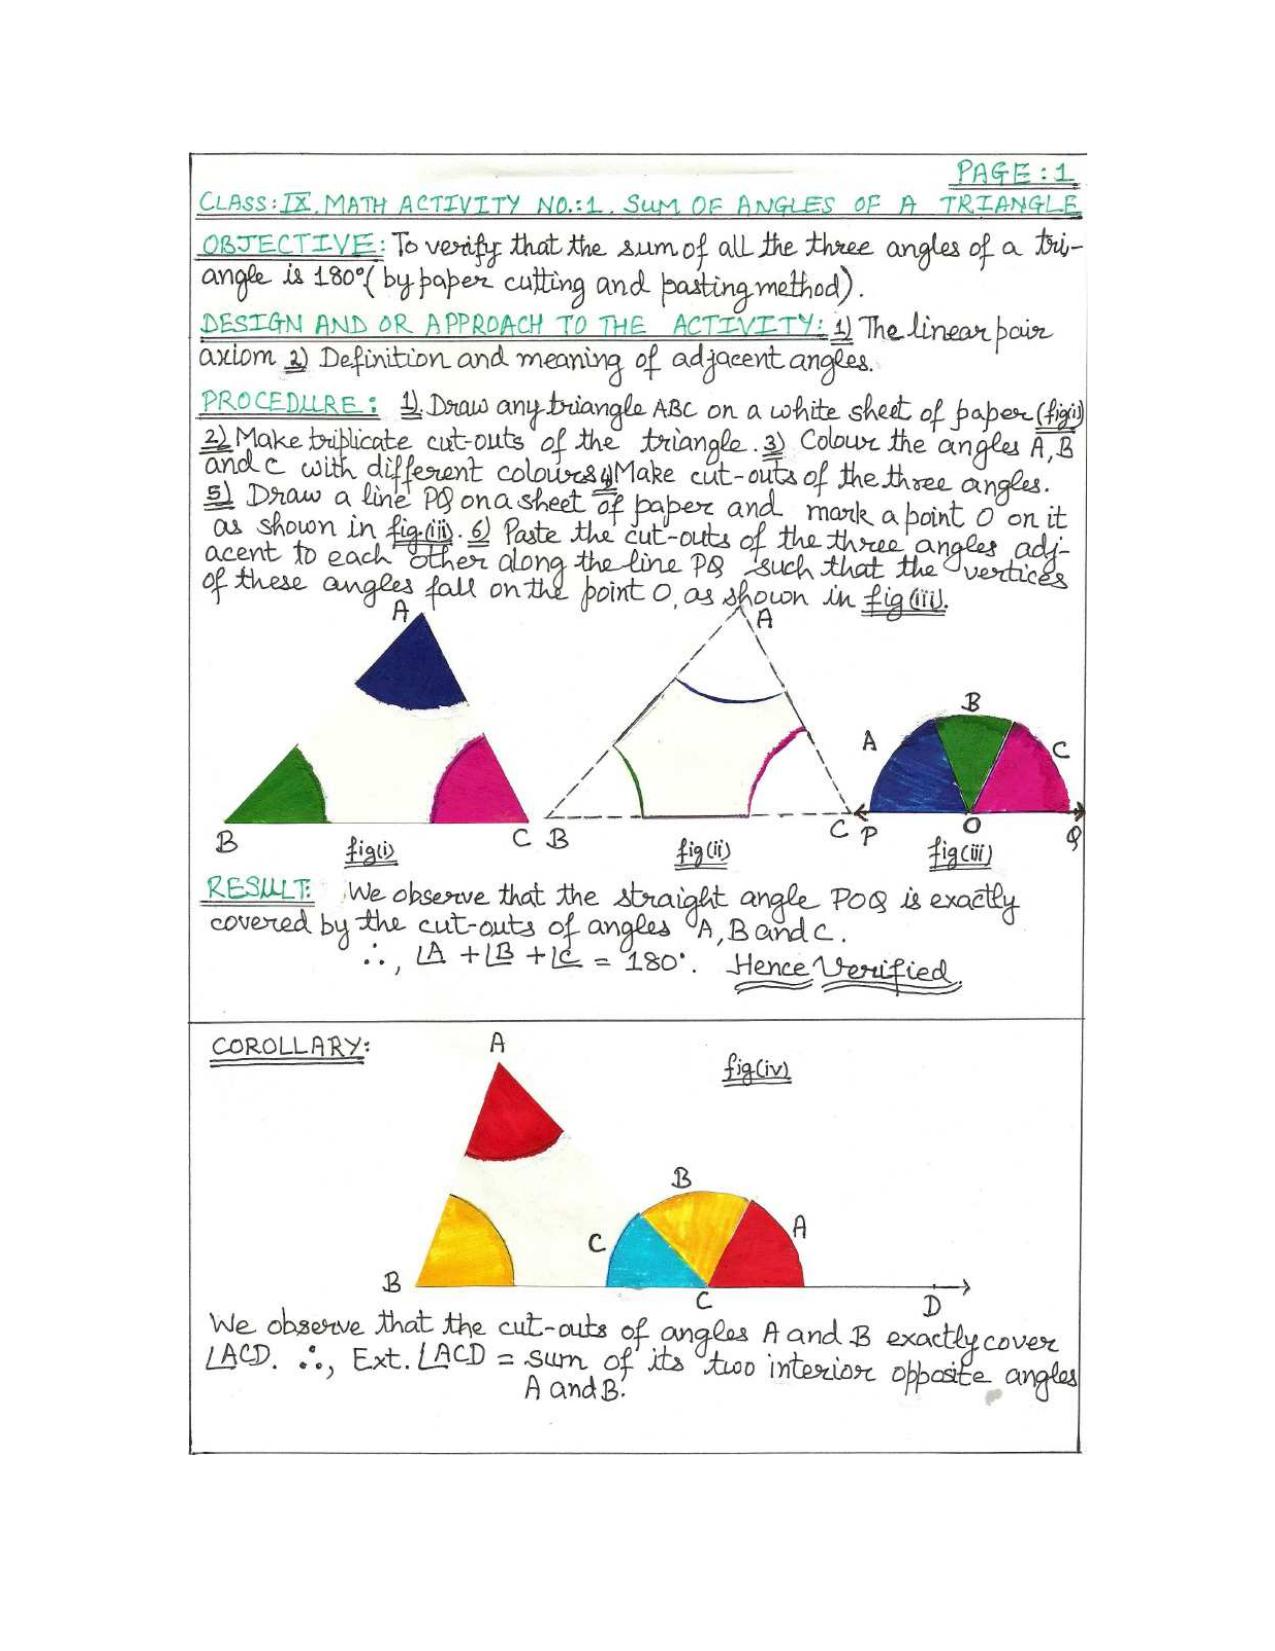 PAGE:1
CLASS:IX. MATH ACTIVITY NO.:1. SUM OF ANGLES OF A TRIANGLE
OBJECTIVE: To verify that the sum of all the three angles of a tri-
angle is 180°(by paper cutting and pasting method).
DESIGN AND OR APPROACH TO THE ACTIVITY: 1) The linear pair
axiom 2) Definition and meaning of adjacent angles.
PROCEDURE: 1) Draw any triangle ABC on a white sheet of paper (fig(i))
2) Make triplicate cut-outs of the triangle. 3) Colour the angles A, B
and C with different colours 4) Make cut-outs of the three angles.
5) Draw a line PQ on a sheet of paper and mark a point O on it
as shown in fig.(iii). 6) Paste the cut-outs of the three angles adj-
acent to each other along the line PQ such that the vertices
of these angles fall on the point O, as shown in fig (iii).
A
A
B
A
C
B
C
B
C
P
O
Q
fig(i)
fig(ii)
fig(iii)
RESULT: We observe that the straight angle POQ is exactly
covered by the cut-outs of angles A, B and C.
∴, ∠A + ∠B + ∠C = 180°. Hence Verified.
COROLLARY:
A
fig(iv)
B
C
A
B
C
D
We observe that the cut-outs of angles A and B exactly cover
∠ACD. ∴, Ext. ∠ACD = sum of its two interior opposite angles
A and B.